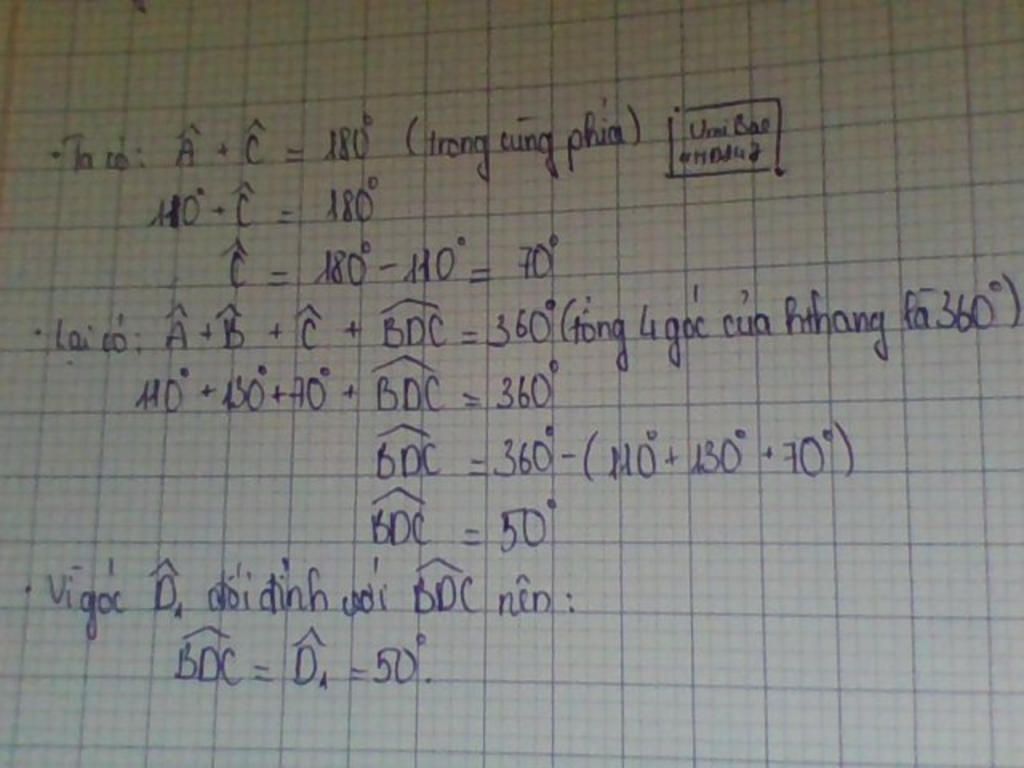 · Ta có: Â + Ĉ = 180° (trong cùng phía)
Umi Bae
110° + Ĉ = 180°
Ĉ = 180° - 110° = 70°
· Lại có: Â + B̂ + Ĉ + B͡DC = 360° (tổng 4 góc của h.thang là 360°)
110° + 130° + 70° + B͡DC = 360°
B͡DC = 360° - (110° + 130° + 70°)
B͡DC = 50°
· Vì góc D̂₁ đối đỉnh với B͡DC nên:
B͡DC = D̂₁ = 50°.